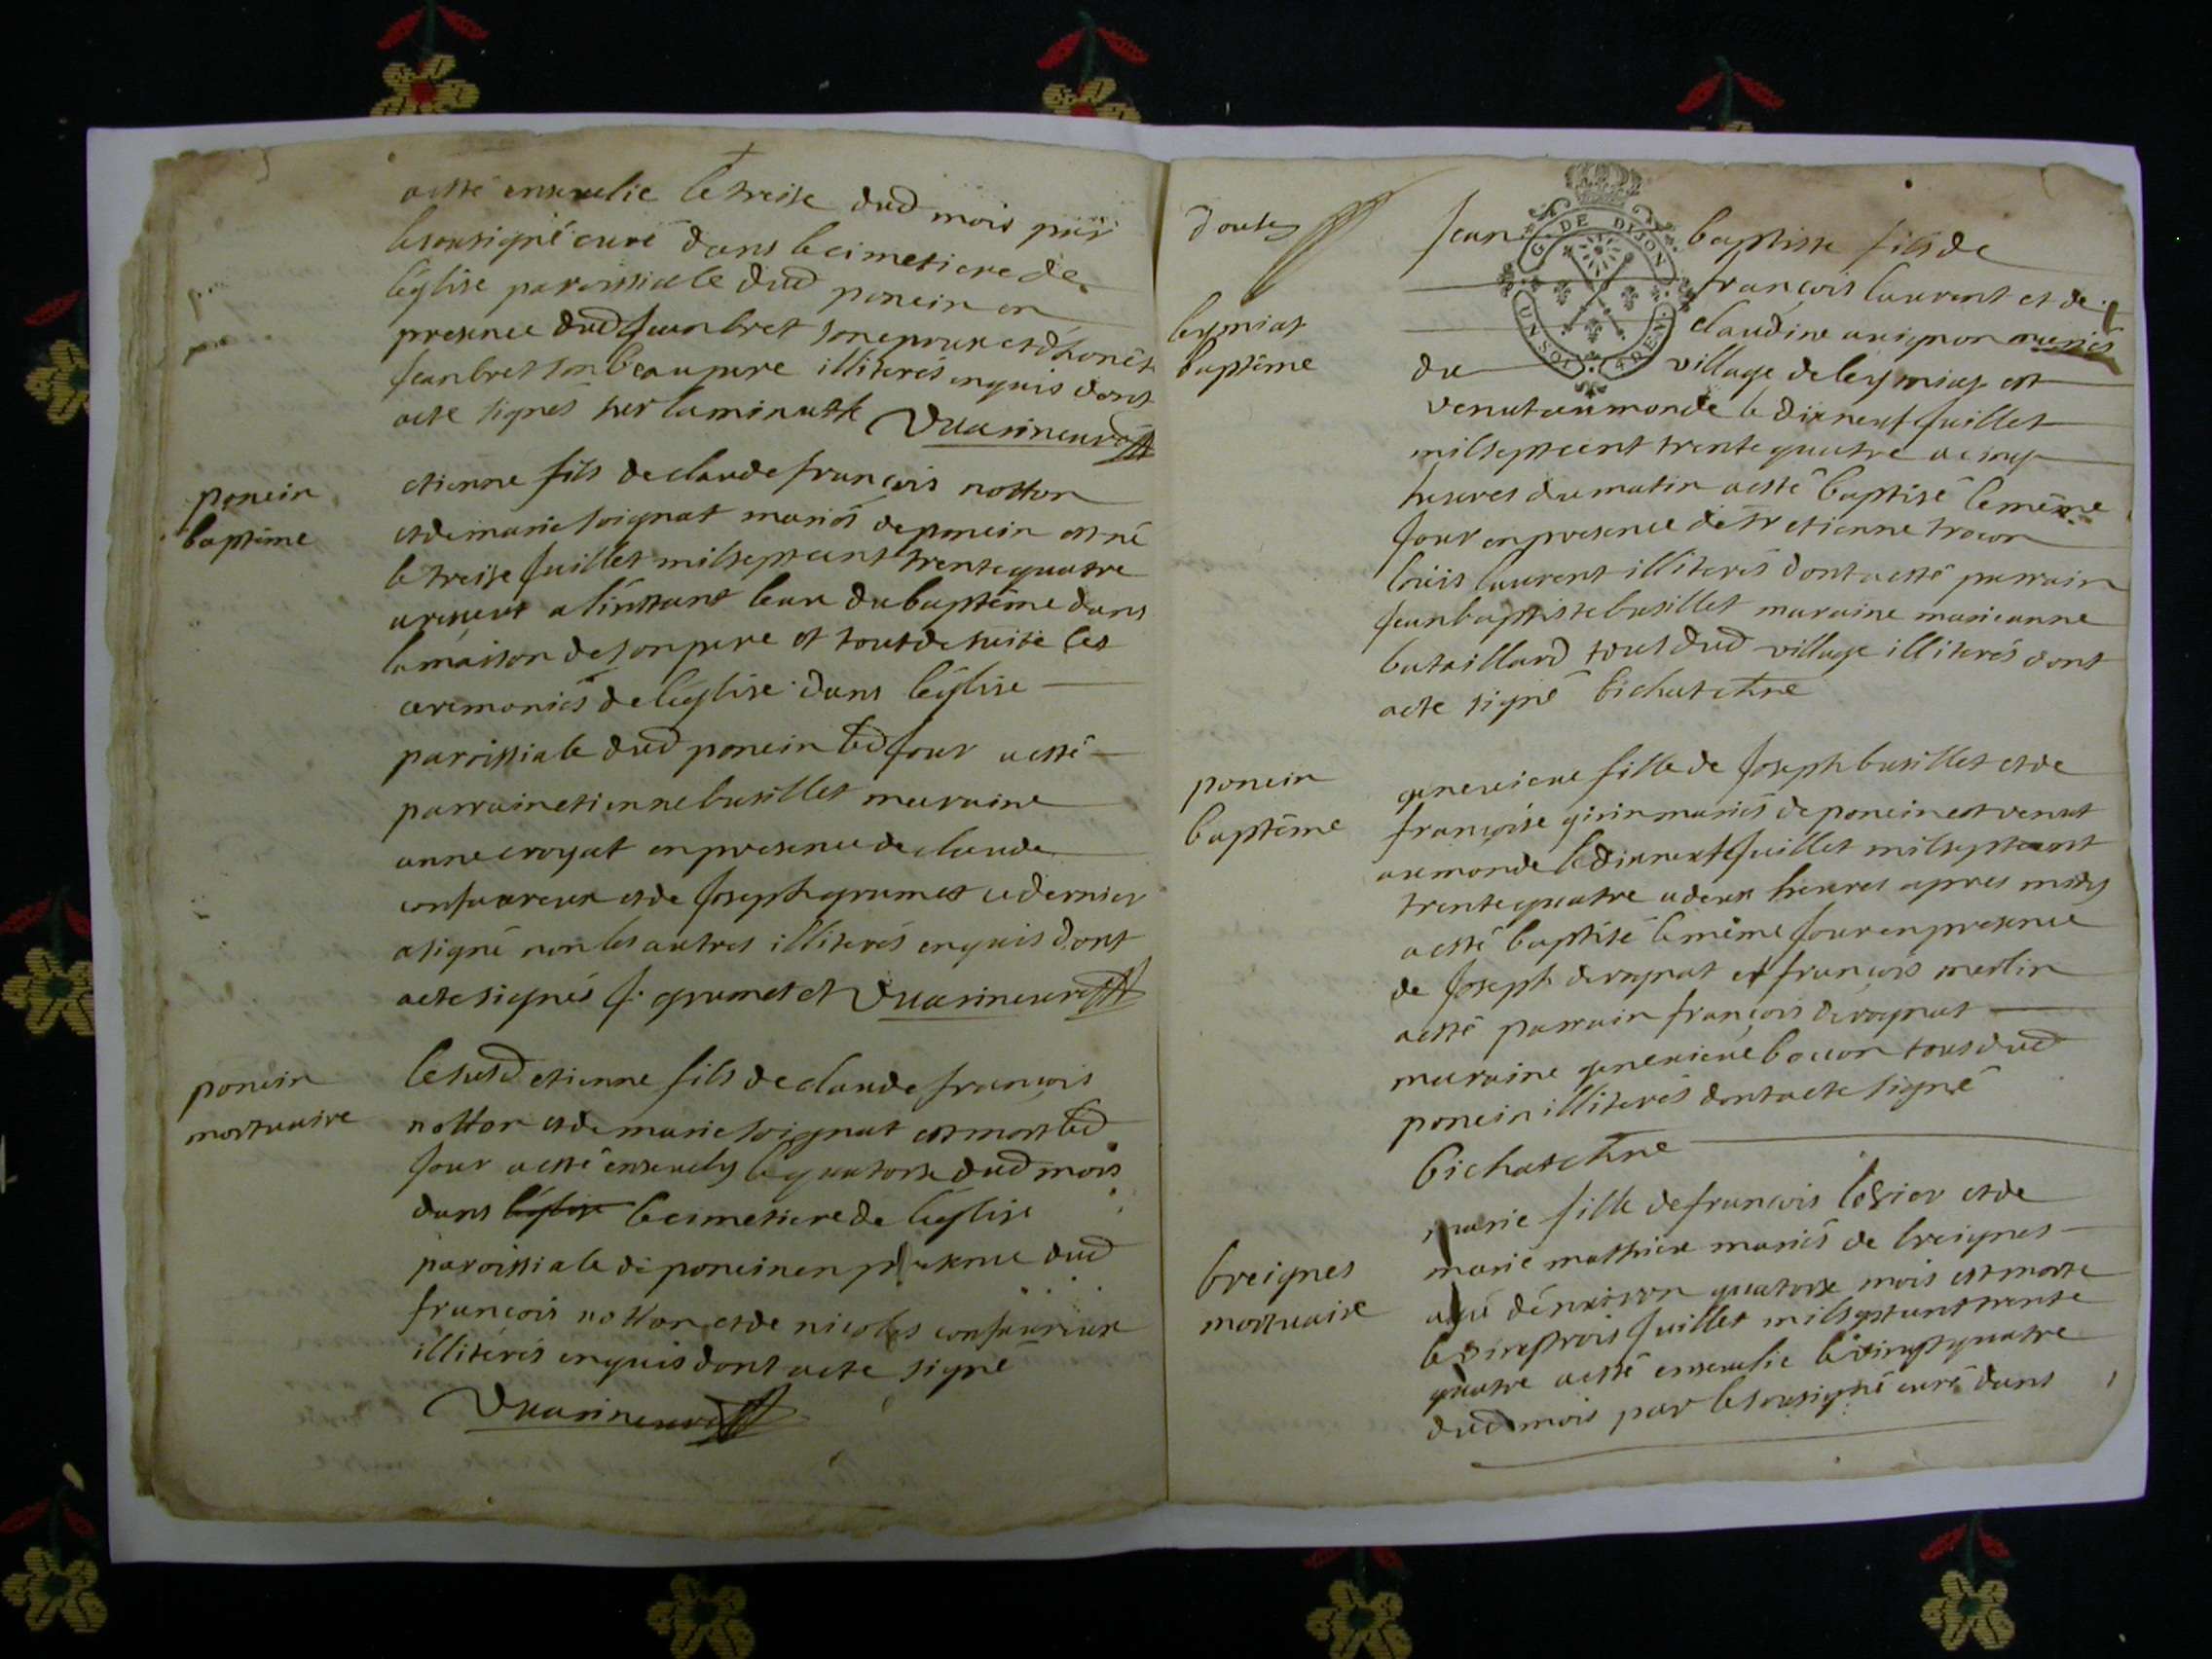 a esté enseuelie le treise dud mois par
le sousigné curé dans le cimetiere de
l'église paroissialle dud poncin en
presence dud Jean bret son epoux et d'honet
Jean bret son beaupere illiterés enquis dont
acte signés sur la minutte Duarin curé
poncin
baptême
etienne fils de claude françois notton
et de marie soignat mariés de poncin est né
le treise Juillet mil sept cent trente quatre
a receut a l'insttant leau du baptême dans
la maison de son pere et tout de suite les
ceremonies de l'église dans l'église
paroissiale dud poncin led Jour a esté
parrain etienne busillet maraine
anne croyat en presence de claude
confavreux et de Joseph grumet ce dernier
a signé non les autres illiterés enquis dont
acte signés J. grumet et Duarin curé
poncin
mortuaire
le susd etienne fils de claude françois
notton et de marie soignat est mort led
Jour a esté enseuely le quatorse dud mois
dans l'église le cimetiere de l'église
paroissiale de poncin en presence dud
françois notton et de nicolas confavreux
illiterés enquis dont acte signé
Duarin curé
douse
G. DE DIJON
UN SOL 4 DEN.
leymiat
baptême
Jean baptiste fils de
françois laurent et de
claudine auignon mariés
du village de leymiat est
venut au monde le dix neuf Juillet
mil sept cent trente quatre a cinq
heures du matin a esté baptisé le même
Jour en presence de sr etienne trocon
loüis laurent illiterés dont a esté parrain
Jean baptiste busillet maraine marie anne
bataillard tous dud village illiterés dont
acte signé bichat
poncin
baptême
geneuieue fille de Joseph busillet et de
françoise girin mariés de poncin est venut
au monde le dix neuf Juillet mil sept cent
trente quatre a deux heures apres midy
a esté baptisé le même Jour en presence
de Joseph derognat et françois merlin
a esté parrain françois derognat
maraine geneuieue bocon tous dud
poncin illiterés dont acte signé
bichat
breignes
mortuaire
marie fille de francois losier et de
marie mathieu mariés de breignes
agé d'enuiron quatorse mois est morte
le vingt trois Juillet mil sept cent trente
quatre a esté enseuelie le vingt quatre
dud mois par le sousigné curé dans